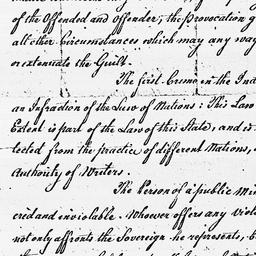 of the Offended and offender, the Provocation g
all other Circumstances which may any way
or extenuate the Guilt.
The first Crime in the Ind
an Infraction of the Law of Nations: This Law
Extent is part of the Law of this State, and is
lected from the practice of different Nations,
Authority of Writers.
The Person of a public Min
cred and inviolable. Whoever offers any Viol
not only affronts the Sovereign he represents,